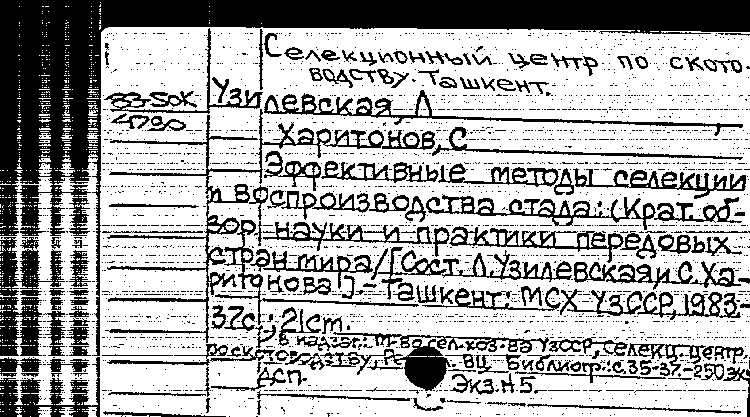 Селекционный центр по ското-
водству. Ташкент.
83-50К
4790
Узилевская, Л
Харитонов, С
Эффективные методы селекции
и воспроизводства стада: (Крат. об-
зор науки и практики передовых
стран мира/[Сост. Л. Узилевская, и С. Ха-
ритонова]. - Ташкент: МСХ УЗССР, 1983.-
37с.; 21cm.
В надзаг.: М-во сел. хоз-ва УзССР, Селекц. центр.
по скотоводству, ВЦ. Библиогр.: с. 35-37.-250 экз
ДСП.
Экз. N 5.